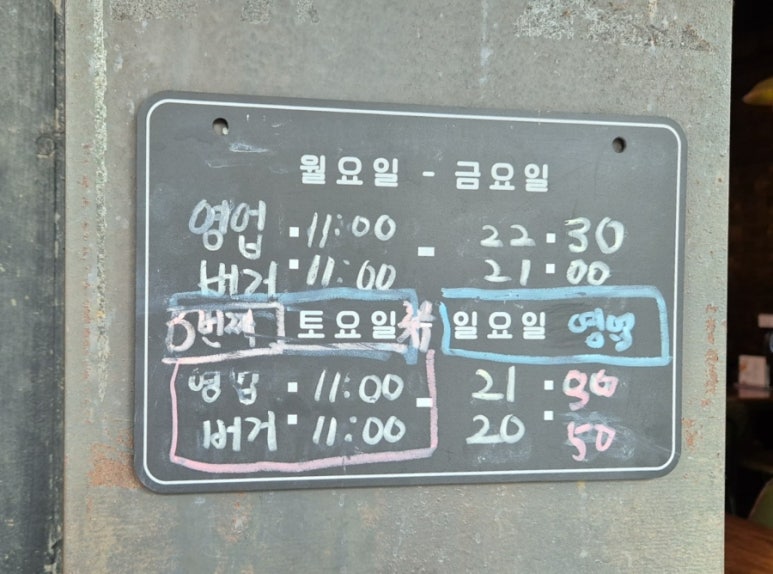 월요일 - 금요일
영업 : 11:00 - 22 : 30
버거 : 11:00 21 : 00
번째 토요일 일요일 영업
영업 : 11:00 - 21 : 30
버거 : 11:00 20 : 50